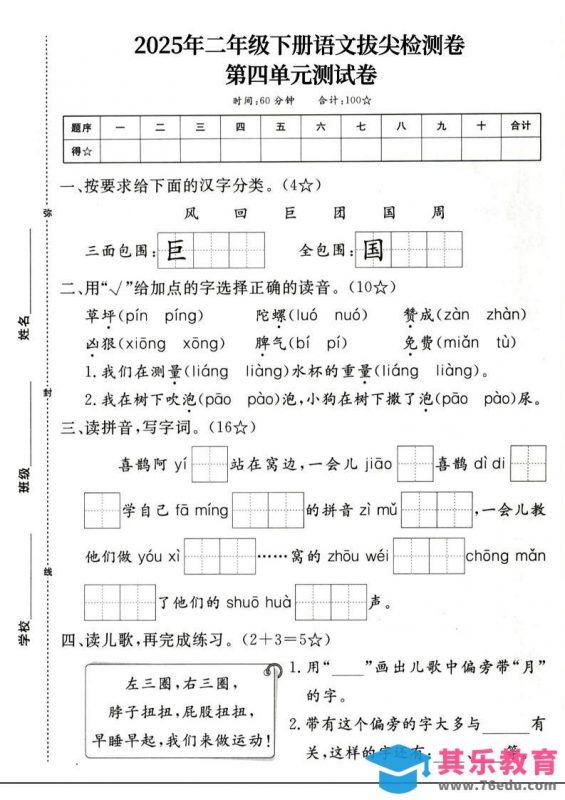 2025年二年级下册语文拔尖检测卷
第四单元测试卷
时间:60分钟 合计:100☆
题序 一 二 三 四 五 六 七 八 九 十 合计
得☆
一、按要求给下面的汉字分类。(4☆)
风 回 巨 团 国 周
三面包围: 巨 全包围: 国
二、用“√”给加点的字选择正确的读音。(10☆)
草坪(pín píng) 陀螺(luó nuó) 赞成(zàn zhàn)
凶狠(xiōng xōng) 脾气(bí pí) 免费(miǎn tù)
1.我们在测量(liáng liàng)水杯的重量(liáng liàng)。
2.我在树下吹泡(pāo pào)泡,小狗在树下撒了泡(pāo pào)尿。
三、读拼音,写字词。(16☆)
喜鹊阿 yí 站在窝边,一会儿 jiāo 喜鹊 dì di
学自己 fā míng 的拼音 zì mǔ ,一会儿教
他们做 yóu xì ……窝的 zhōu wéi chōng mǎn
了他们的 shuō huà 声。
四、读儿歌,再完成练习。(2+3=5☆)
左三圈,右三圈,
脖子扭扭,屁股扭扭,
早睡早起,我们来做运动!
1.用“____”画出儿歌中偏旁带“月”
的字。
2.带有这个偏旁的字大多与______有
关,这样的字还有:
弥
封
线
姓名
班级
学校
其乐教育
www.76edu.com